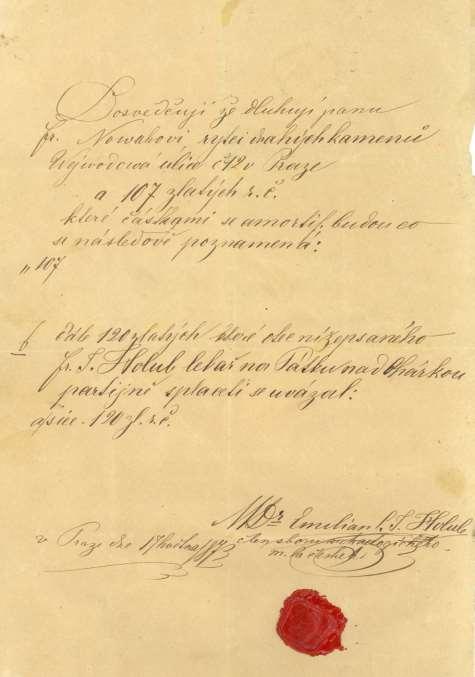 Dosvědčuji že dluhuji panu
fr. Nowakovi rytci drahých kamenů
ulica č 12 v Praze
a 107 zlatých r. č.
které částkami se amortis. budou co
se následově poznamená:
„107
b dále 120 zlatých které obe nížepsaného
fr. S. Holub lekař na Pátku nad Ohárkou
partijně splaceti se uvázal:
120 zl. r. č.
MDr Emilian S. Holub
v Praze dne 17